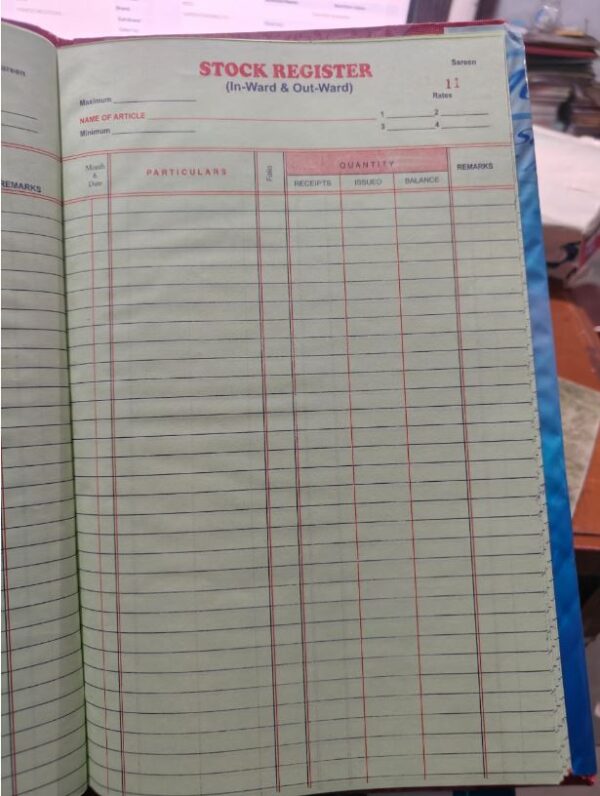 Sareen
REMARKS
Sareen
STOCK REGISTER
11
(In-Ward & Out-Ward)
Rates
Maximum
NAME OF ARTICLE
1 2
Minimum
3 4
Month & Date
PARTICULARS
Folio
QUANTITY
REMARKS
RECEIPTS ISSUED BALANCE